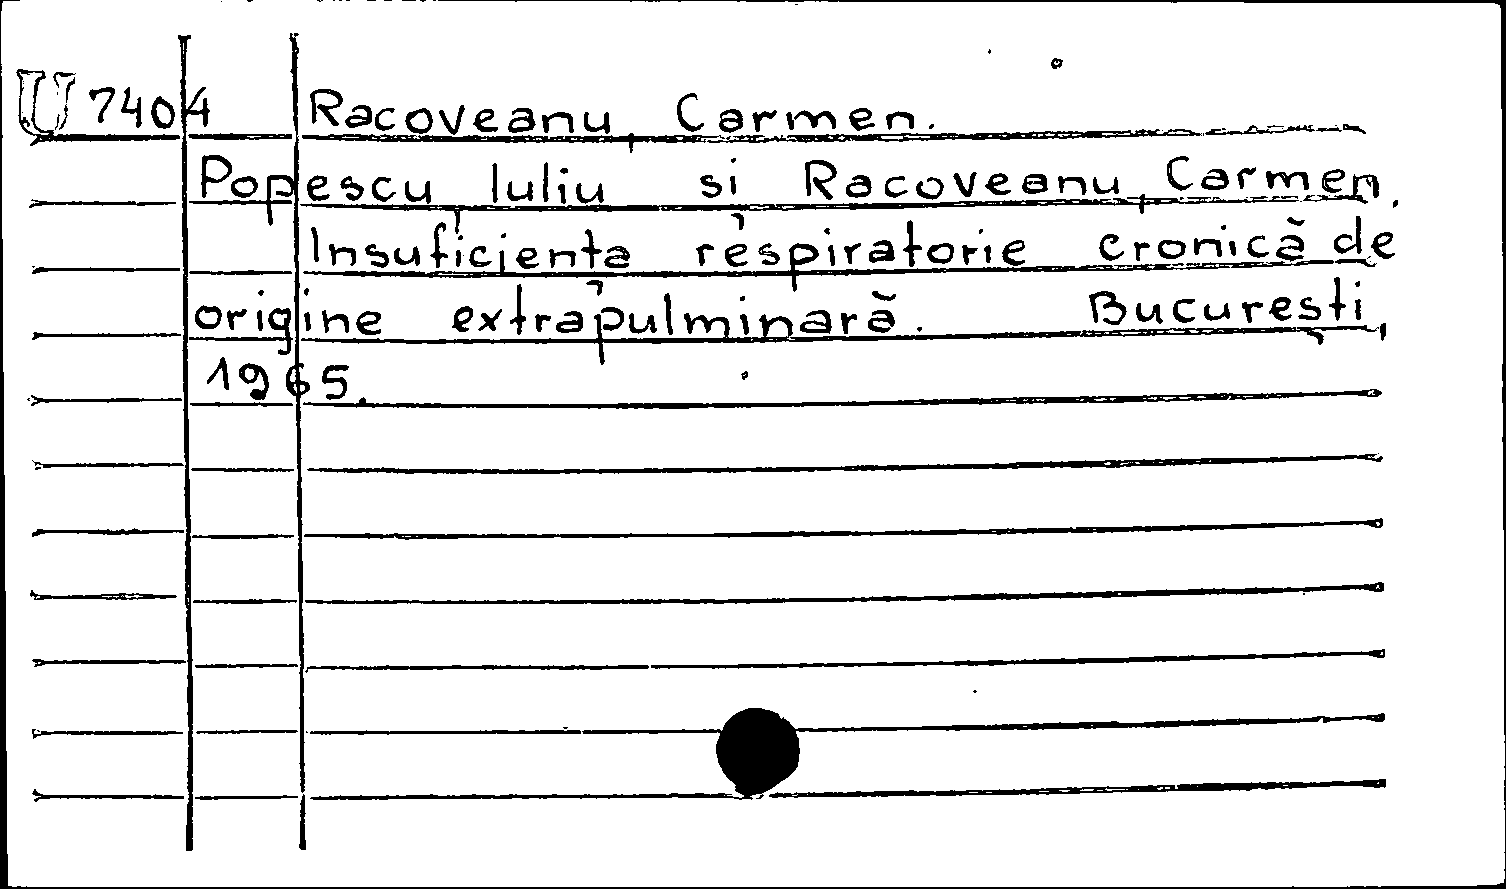 U 7404 Racoveanu, Carmen.
Popescu, Iuliu și Racoveanu, Carmen.
Insuficiența respiratorie cronică de
origine extrapulminară. București,
1965.